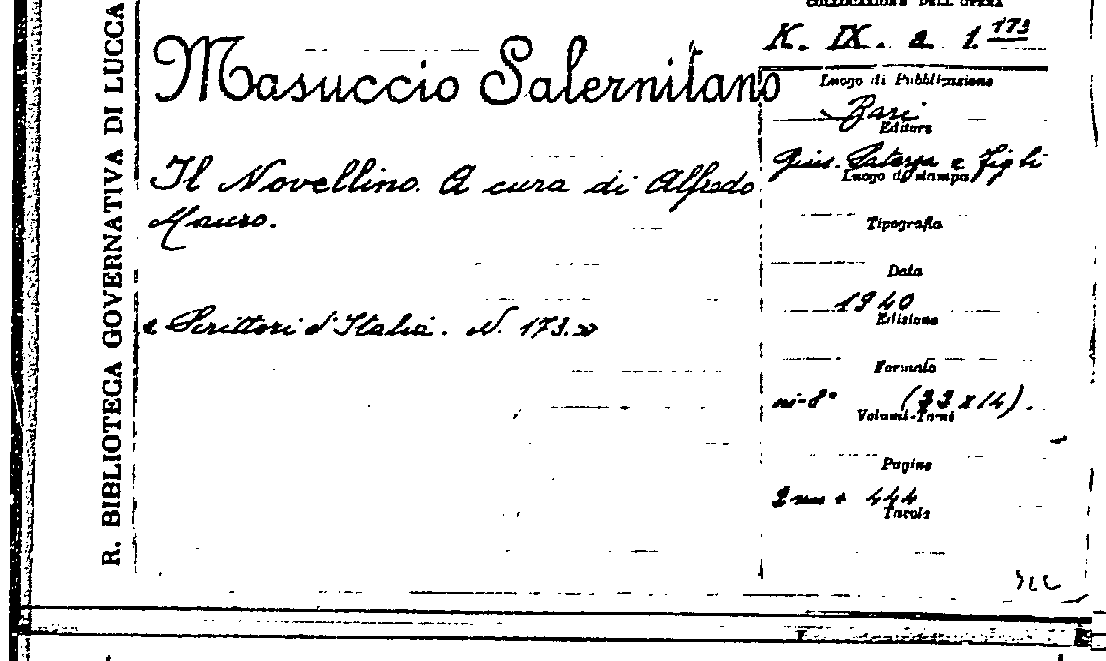 R. BIBLIOTECA GOVERNATIVA DI LUCCA
COLLOCAZIONE DELL'OPERA
K. IX. a. 1. 173
Masuccio Salernitano
Il Novellino. A cura di Alfredo
Mauro.
« Scrittori d'Italia. N. 173.»
Luogo di Pubblicazione
Bari
Editore
Gius. Laterza e Figli
Luogo di stampa
Tipografia
Data
1940
Edizione
Formato
in-8° (22x14).
Volumi-Tomi
Pagine
2 nn + 444
Tavole